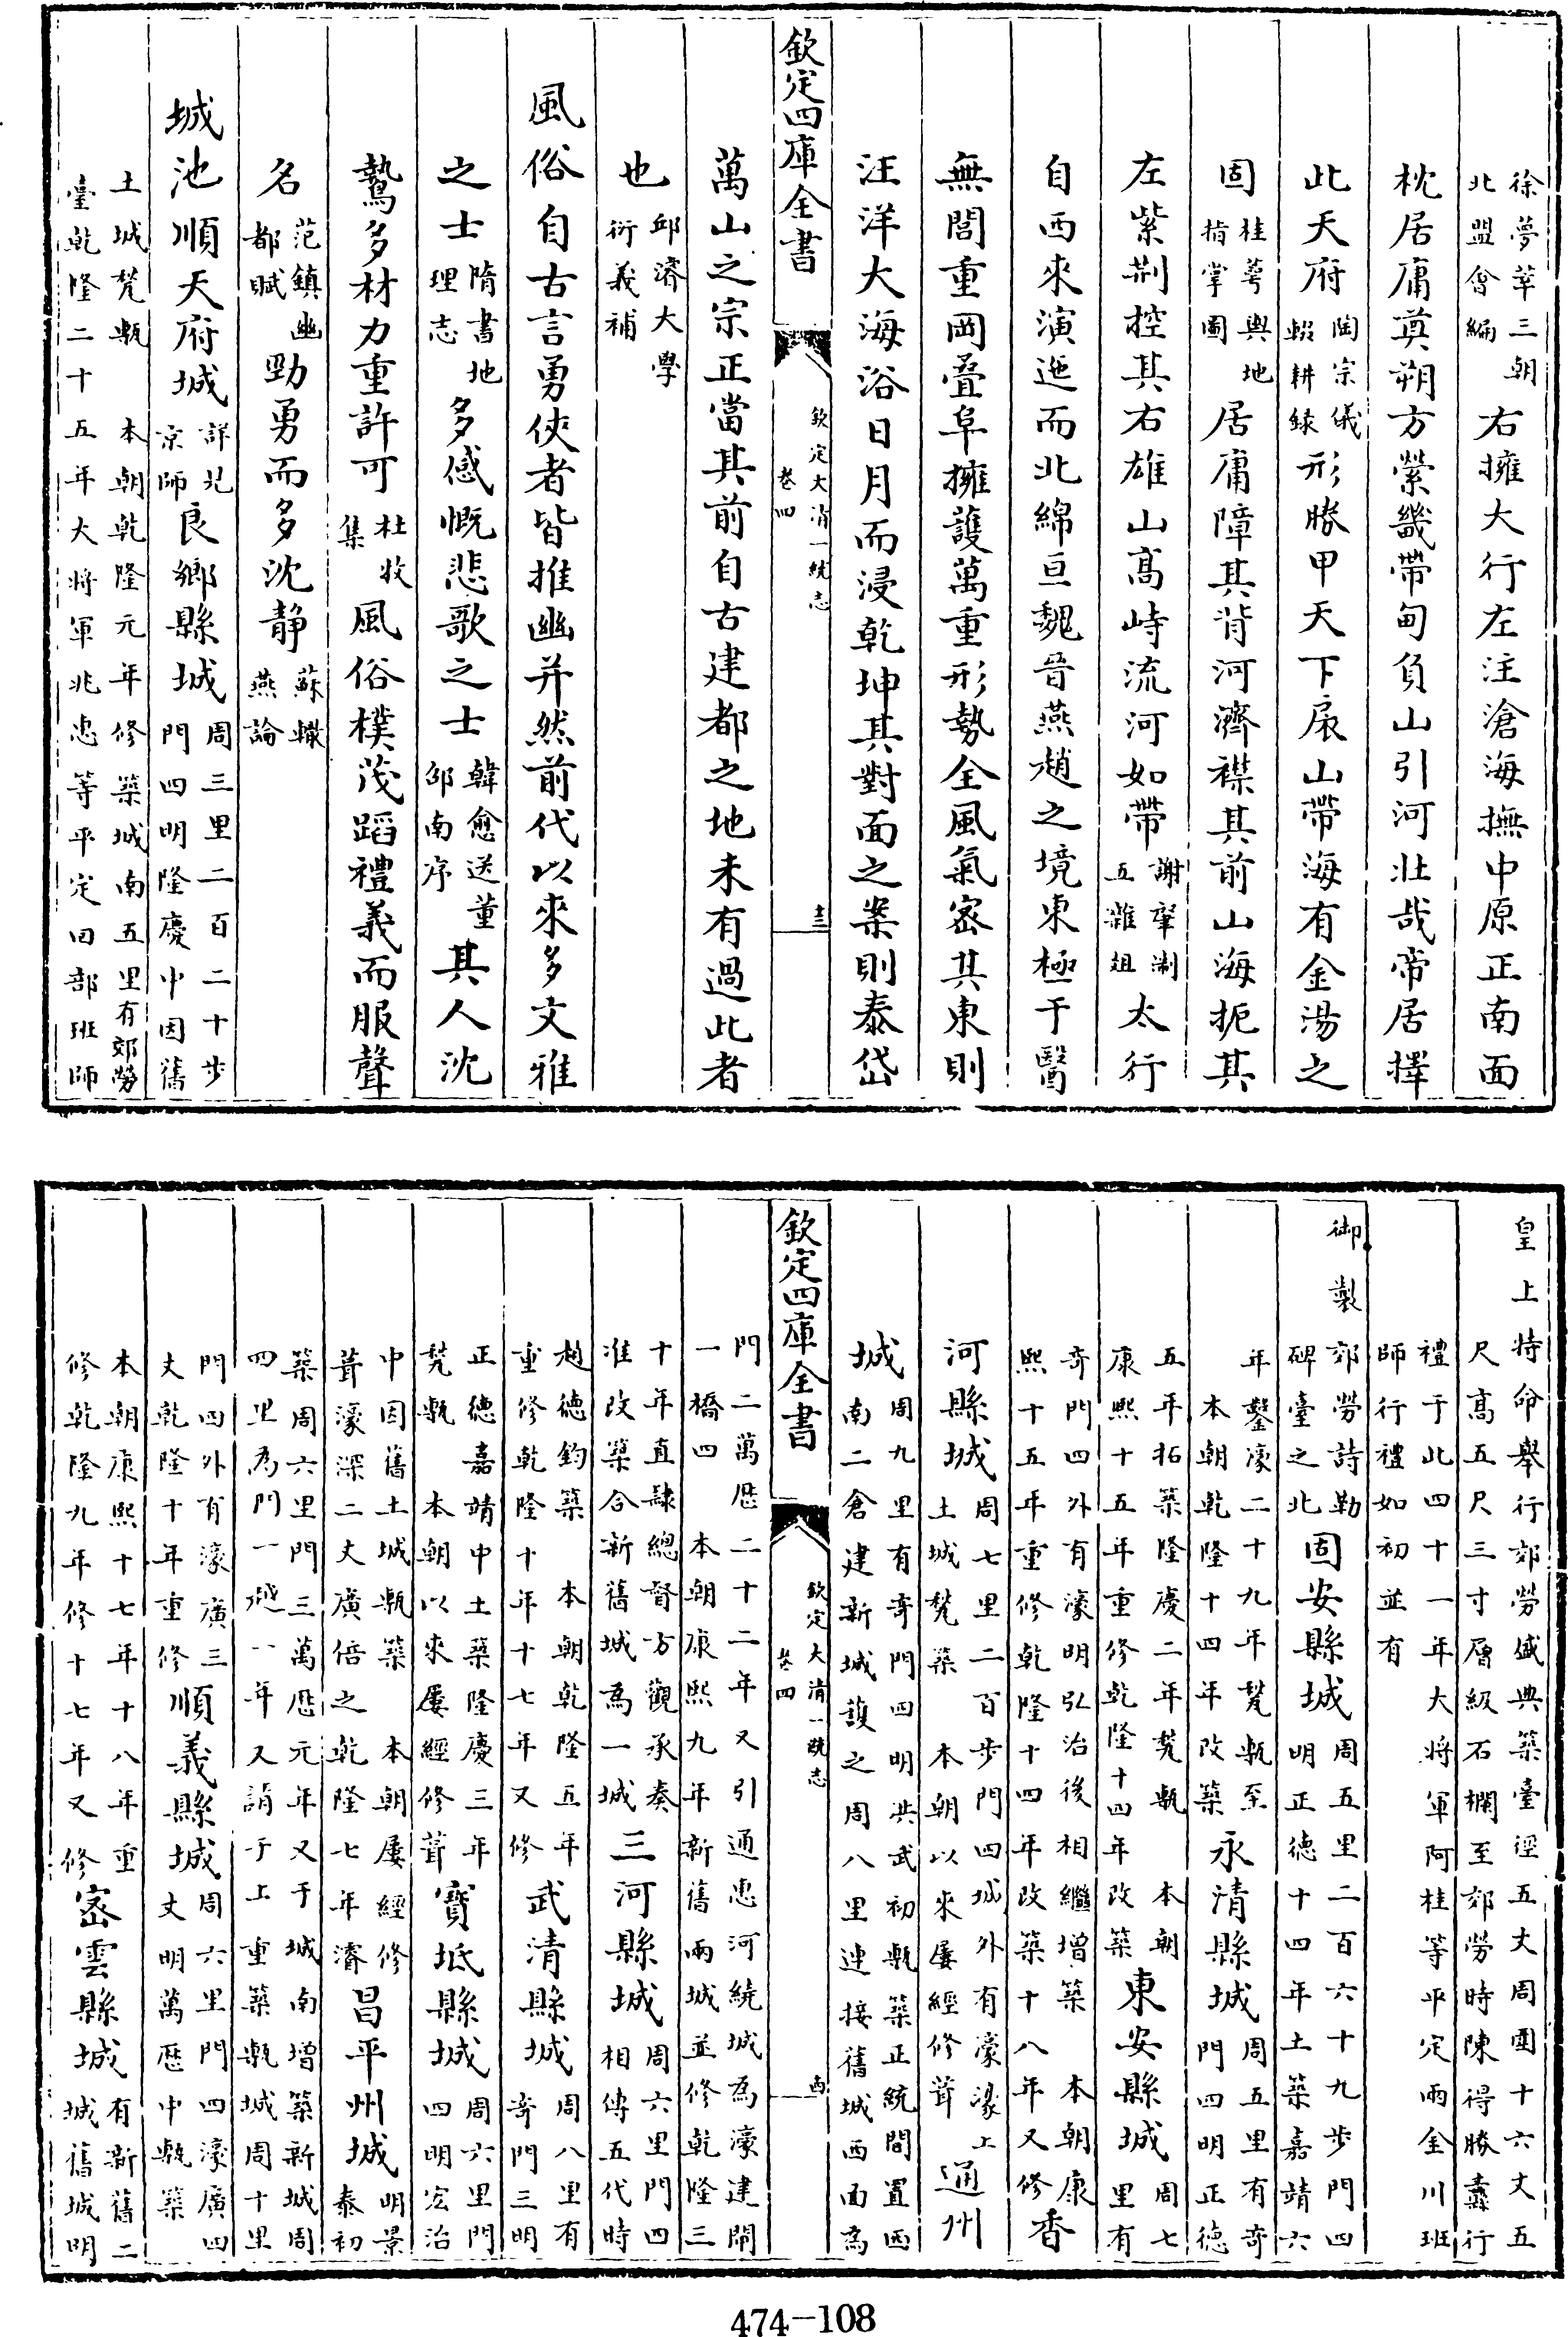 徐夢莘三朝北盟會編右擁大行左注滄海撫中原正南面
枕居庸奠朔方縈畿帶甸負山引河壯哉帝居擇
此天府陶宗儀輟耕録形勝甲天下扆山帶海有金湯之
固桂萼輿地指掌圖居庸障其背河濟襟其前山海扼其
左紫荆控其右雄山髙峙流河如帶謝肇淛五雜俎太行
自西來演迤而北綿亘魏晉燕趙之境東極于醫
無閭重岡疊阜擁䕶萬重形勢全風氣宻其東則
汪洋大海浴日月而浸乾坤其對面之案則泰岱
欽定四庫全書
欽定大清一統志
卷四
十三
萬山之宗正當其前自古建都之地未有過此者
也邱濬大學衍義補
風俗自古言勇俠者皆推幽并然前代以來多文雅
之士隋書地理志多感慨悲歌之士韓愈送董邵南序其人沈
鷙多材力重許可杜牧集風俗樸茂蹈禮義而服聲
名范鎮幽都賦勁勇而多沈静蘇轍燕論
城池順天府城詳見京師良鄉縣城周三里二百二十步門四明隆慶中因舊
土城甃甎 本朝乾隆元年修築城南五里有郊勞臺乾隆二十五年大將軍兆惠等平定回部班師
皇上特命舉行郊勞盛典築臺徑五丈周圍十六丈五尺髙五尺三寸層級石欄至郊勞時陳得勝纛行
禮于此四十一年大將軍阿桂等平定兩金川班師行禮如初並有
御製郊勞詩勒碑臺之北固安縣城周五里二百六十九步門四明正德十四年土築嘉靖六
年鑿濠二十九年甃甎至 本朝乾隆十四年改築永清縣城周五里有奇門四明正德
五年拓築隆慶二年甃甎 本朝康熙十五年重修乾隆十四年改築東安縣城周七里有
奇門四外有濠明弘治後相繼增築 本朝康熙十五年重修乾隆十四年改築十八年又修香
河縣城周七里二百步門四城外有濠濠上土城甃築 本朝以來屢經修葺通州
城周九里有奇門四明洪武初甎築正統間置西南二倉建新城䕶之周八里連接舊城西面爲
欽定四庫全書
欽定大清一統志
卷四
十四
門二萬厯二十二年又引通惠河繞城為濠建閘一橋四 本朝康熙九年新舊兩城並修乾隆三
十年直隸總督方觀承奏准改築合新舊城為一城三河縣城周六里門四相傳五代時
趙德鈞築 本朝乾隆五年重修乾隆十年十七年又修武清縣城周八里有奇門三明
正德嘉靖中土築隆慶三年甃甎 本朝以來屢經修葺寶坻縣城周六里門四明宏治
中因舊土城甎築 本朝屢經修葺濠深二丈廣倍之乾隆七年濬昌平州城明景泰初
築周六里門三萬厯元年又于城南增築新城周四里為門一越一年又請于上重築甎城周十里
門四外有濠廣三丈乾隆十年重修順義縣城周六里門四濠廣四丈明萬厯中甎築
本朝康熙十七年十八年重修乾隆九年修十七年又修宻雲縣城有新舊二城舊城明
474-108